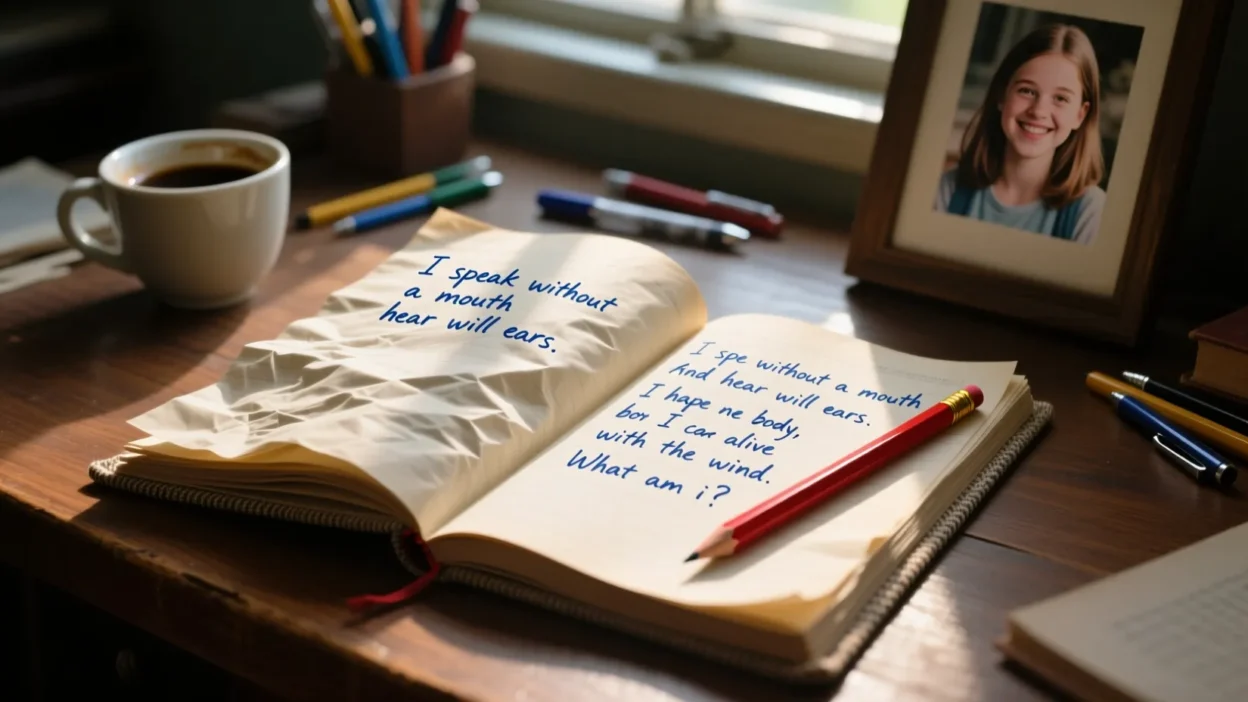 I speak without
a mouth
hear will ears.
I spe without a mouth
And hear will ears.
I hape ne body,
bor I can alive
with the wind.
What am i?